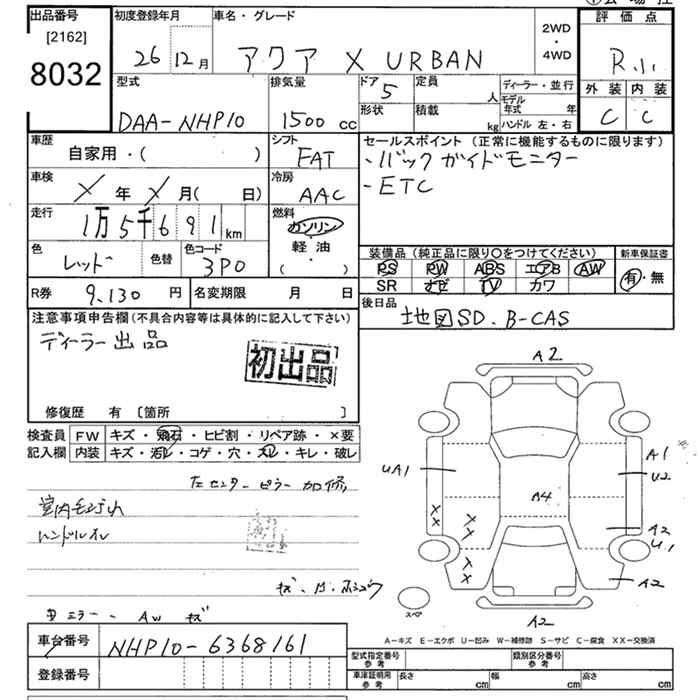 出品番号 初度登録年月 車名・グレード
[2162]
8032
26 12月 アクア X URBAN
2WD
・
4WD
評価点
R.
型式 排気量 ドア 5 定員 人 ディーラー・並行
DAA-NHP10 1500 cc
モデル年式 年
形状 積載 kg ハンドル 左・右
外装 内装
C C
車歴 シフト
自家用・( ) FAT
セールスポイント (正常に機能するものに限ります)
・バックガイドモニター
・ETC
車検 X 年 X 月( 日) 冷房 AAC
走行 1万5千691km 燃料
ガソリン
軽油・
( )
色 レッド 色替 色コード 3P0
装備品 (純正品に限り○をつけてください) 新車保証書
PS PW ABS エアB AW
SR ナビ TV カワ
有・無
R券 9,130 円 名変期限 月 日
後日品 地図SD. B-CAS
注意事項申告欄 (不具合内容等は具体的に記入して下さい)
ディーラー出品
初出品
修復歴 有 〔箇所 〕
検査員 FW キズ・飛石・ヒビ割・リペア跡・×要
記入欄 内装 キズ・汚レ・コゲ・穴・スレ・キレ・破レ
左センターピラー加修
ハンドルスレ
A2
UA1
A1
U2
A4
X X
X X
X X
X X
A2
U1
A2
A2
スペア
ミラー AW キズ
A-キズ E-エクボ U-凹み W-補修跡 S-サビ C-腐食 XX-交換済
車台番号 NHP10-6368161
型式指定番号 参考 類別区分番号 参考
登録番号
車庫証明用 参考 長さ cm 幅 cm 高さ cm